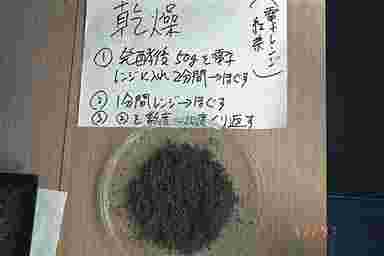 乾燥
(電子レンジ
紅茶)
① 発酵後 50gを電子
レンジに入れ 2分間→ほぐす
② 1分間レンジ→ほぐす
③ ②を数度くり返す